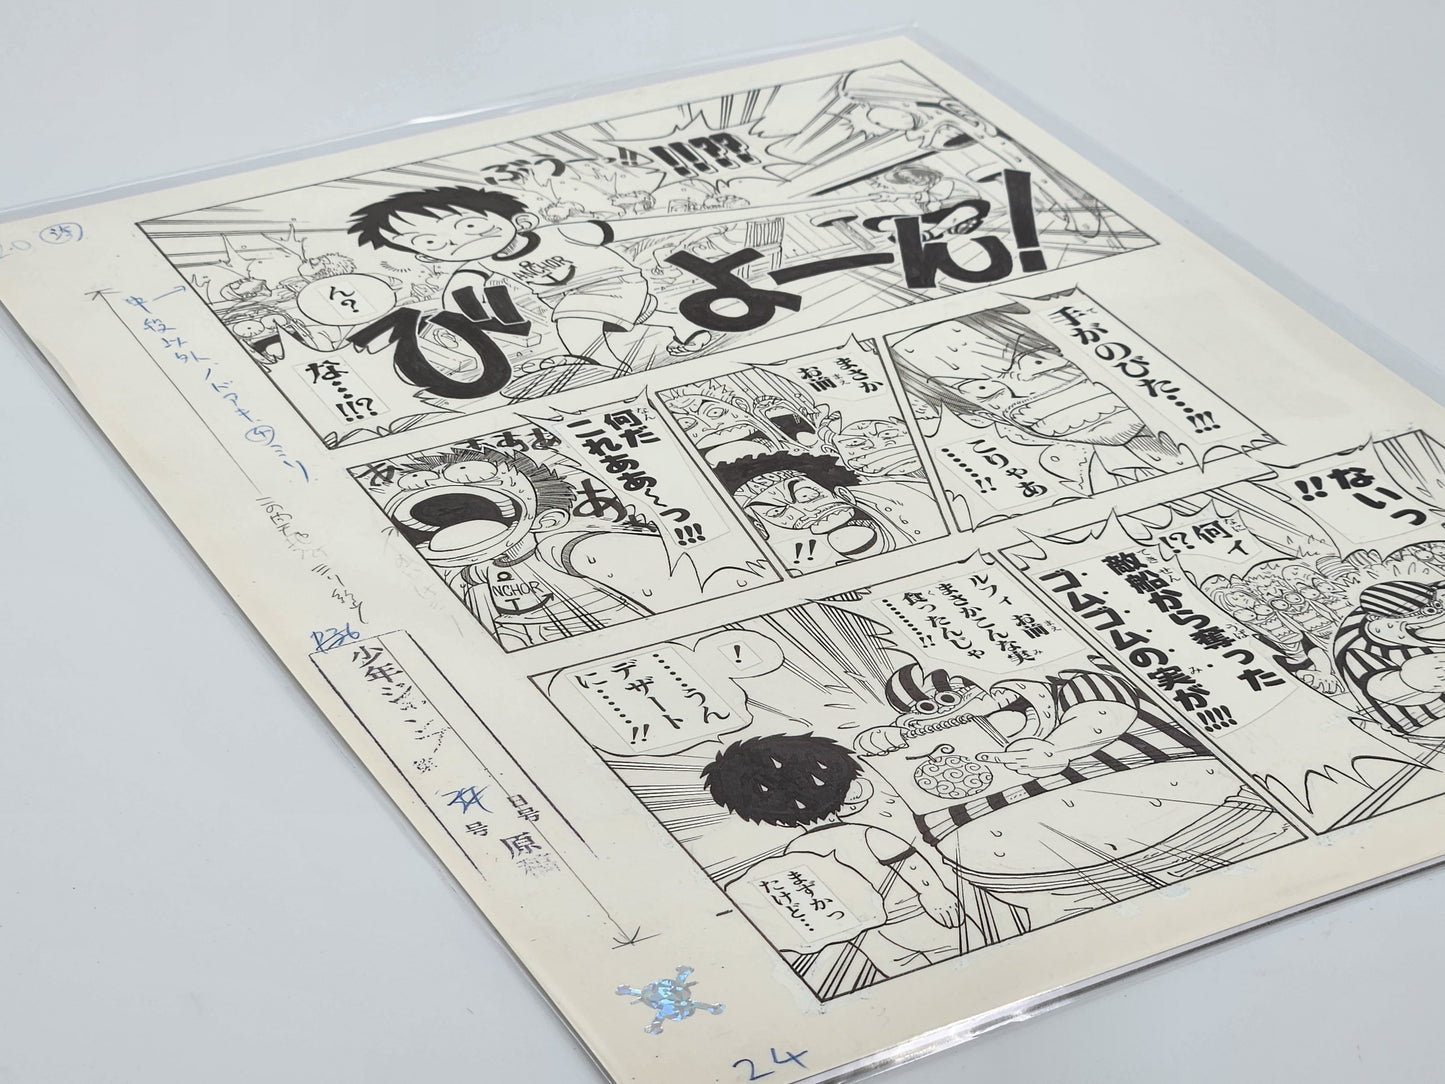 ぶうーっ!!
!!??
びよーん!
ん?
な…!!?
手がのびた…!!!
こりゃあ
……!!
まさか
お前
!!
何だ
これああ〜っ!!!
あああああ
NCHOR
ないっ
!!
何ィ
!?
敵船から奪った
ゴムゴムの実が!!!!
ルフィ お前
まさかこんな実
食ったんじゃ
………!!
!
……うん
デザート
に……
…!!
まずかっ
たけど…
中段以外、ノドアキ④ミリ
P36
少年ジャンプ
34
号
日号
原稿
24